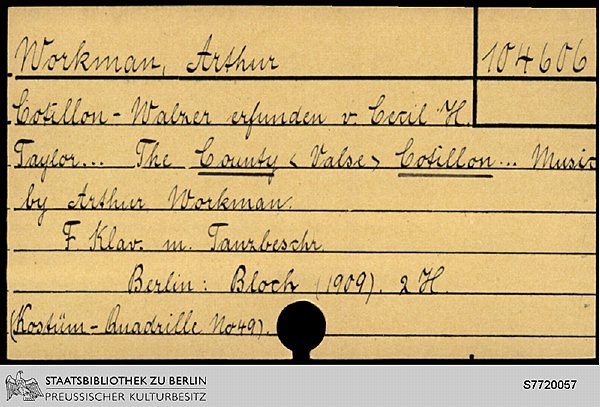 Workman, Arthur
104606
Cotillon-Walzer erfunden v. Cecil H.
Taylor... The County <Valse> Cotillon... Music
by Arthur Workman.
F. Klav. m. Tanzbeschr.
Berlin: Bloch (1909). 2 H.
(Kostüm-Quadrille No 49).
STAATSBIBLIOTHEK ZU BERLIN
PREUSSISCHER KULTURBESITZ
S7720057